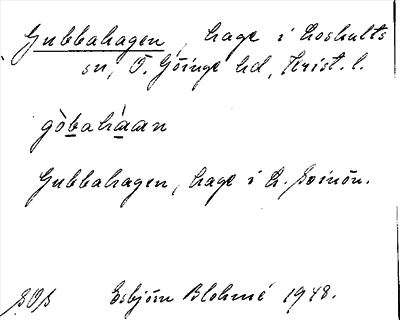 Gubbahagen, hage i Loshults
sn, Ö. Göinge hd, Krist. l.
gòbahàan
Gubbahagen, hage i L. Svinön.
SOS Esbjörn Blohmé 1948.